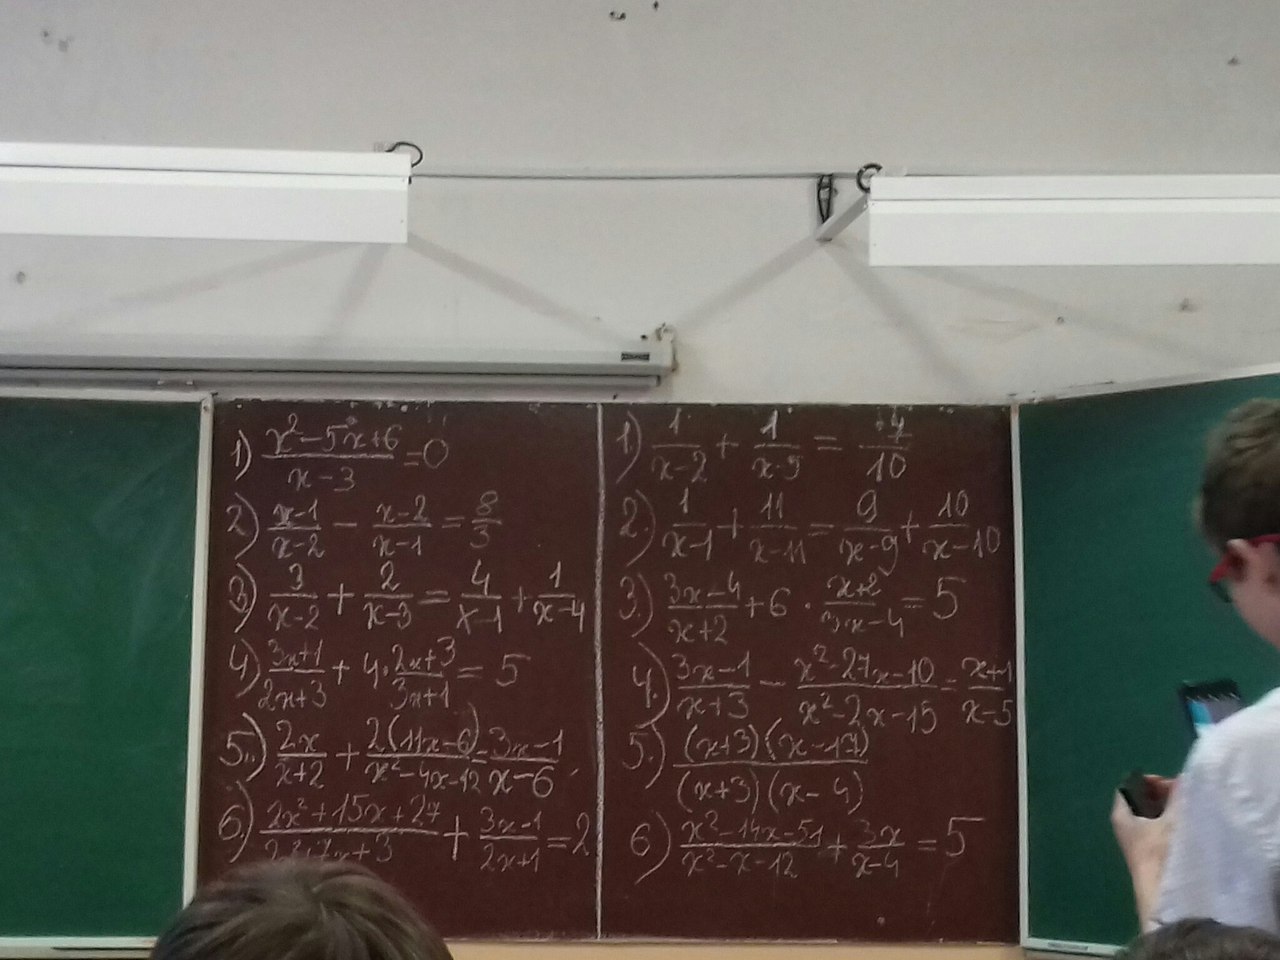 1) (x²-5x+6)/(x-3) = 0
2) (x-1)/(x-2) - (x-2)/(x-1) = 8/3
3) 3/(x-2) + 2/(x-3) = 4/(x-1) + 1/(x-4)
4) (3x+1)/(2x+3) + 4·(2x+3)/(3x+1) = 5
5.) 2x/(x+2) + 2(11x-6)/(x²-4x-12) = (3x-1)/(x-6)
6) (2x²+15x+27)/(2x²+7x+3) + (3x-1)/(2x+1) = 2
1) 1/(x-2) + 1/(x-5) = /10
2.) 1/(x-1) + 11/(x-11) = 9/(x-9) + 10/(x-10)
3.) (3x-4)/(x+2) + 6·(x+2)/(3x-4) = 5
4.) (3x-1)/(x+3) - (x²-27x-10)/(x²-2x-15) = (x+1)/(x-5)
5.) (x+3)(x-17)/(x+3)(x-4)
6) (x²-14x-51)/(x²-x-12) + 3x/(x-4) = 5